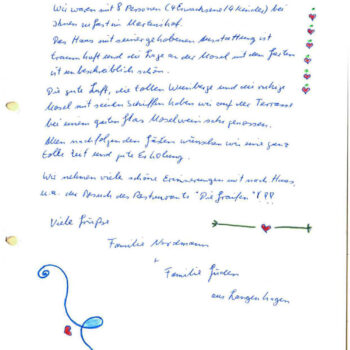 Wir waren mit 8 Personen (4 Erwachsene/4 Kinder) bei
Ihnen zu Gast im
Das Haus mit seiner gehobenen Ausstattung ist
traumhaft und die Lage an der Mosel mit dem Garten
ist unbeschreiblich schön.
Die gute Luft, die tollen Weinberge und die ruhige
Mosel mit seinen Schiffen haben wir auf der Terrasse
bei einem guten Glas Moselwein sehr genossen.
Allen nachfolgenden Gästen wünschen wir eine ganz
tolle Zeit und gute Erholung.
Wir nehmen viele schöne Erinnerungen mit nach Haus,
u.a. der Besuch des Restaurants "Die Graifen"!!!
Viele Grüße
Familie Nordmann
+
Familie
aus Langenhagen